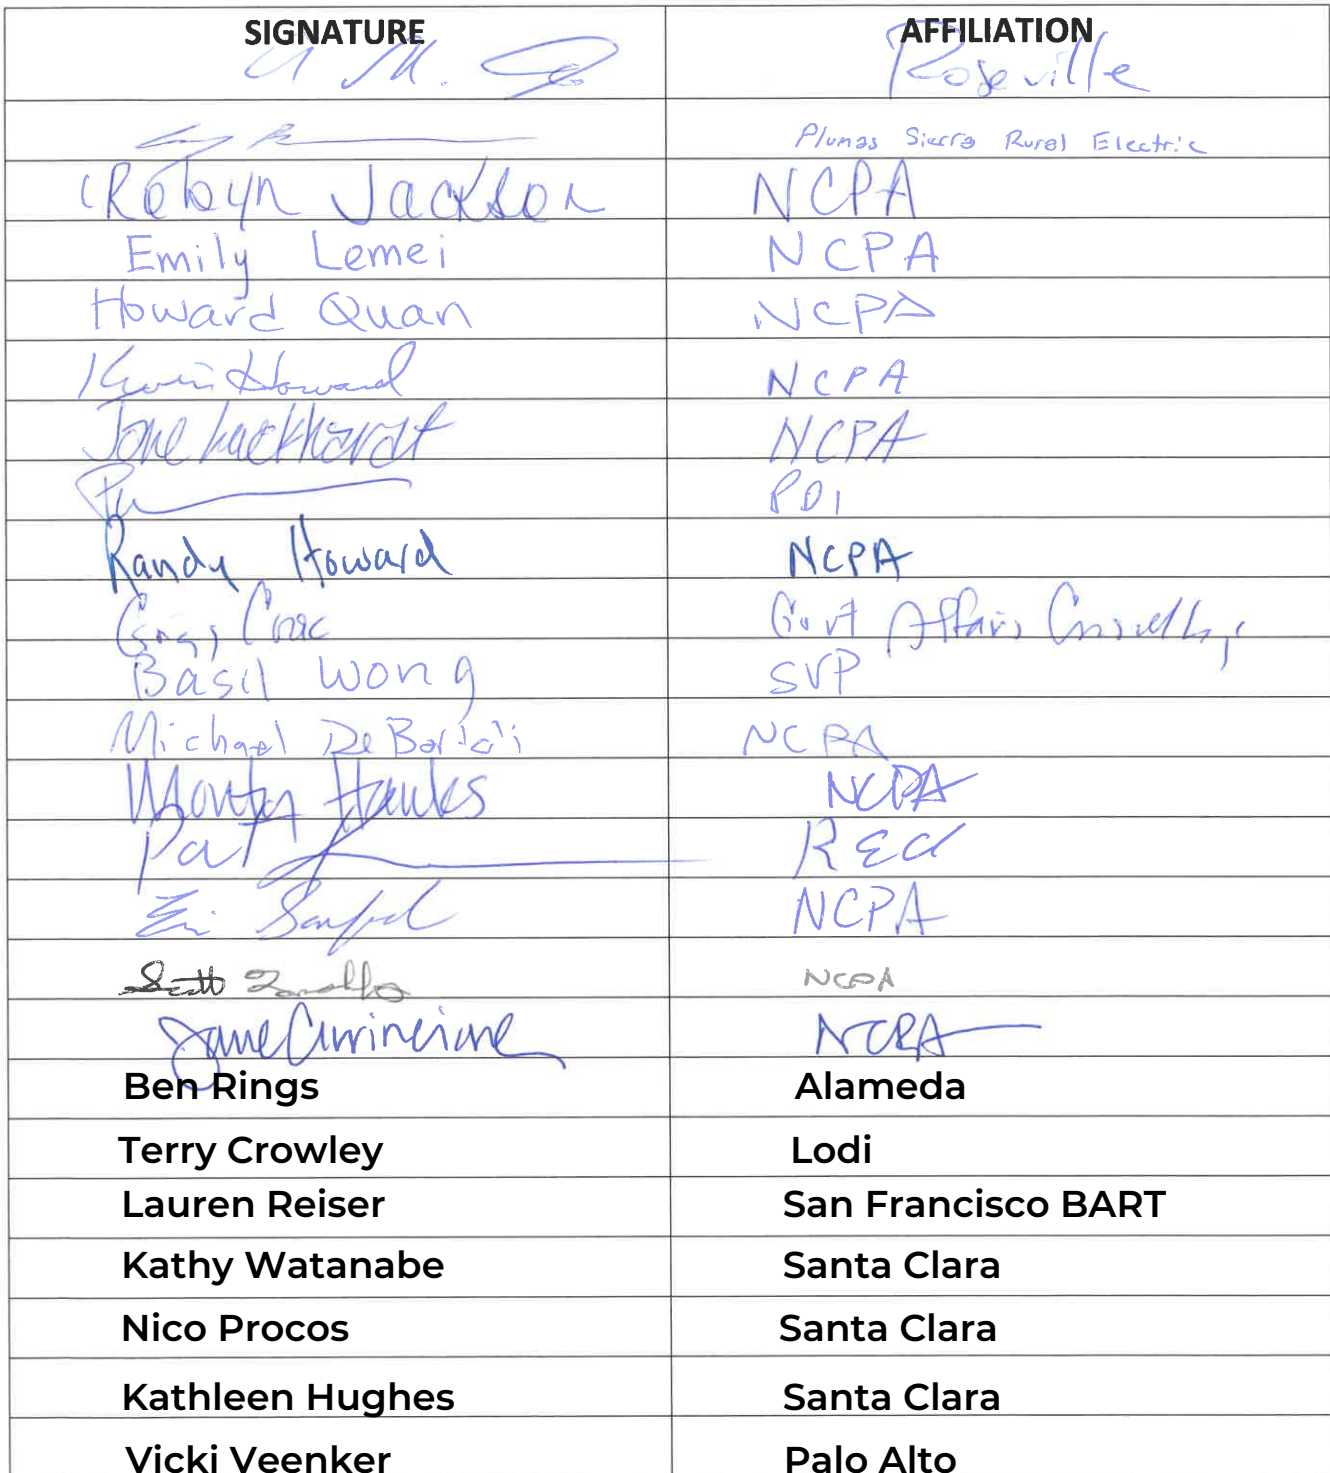 SIGNATURE AFFILIATION
Roseville
Plumas Sierra Rural Electric
Robyn Jackson NCPA
Emily Lemei NCPA
Howard Quan NCPA
Kevin Howard NCPA
Jane Luckhardt NCPA
PDI
Randy Howard NCPA
Govt Affairs Consulting
Basil Wong SVP
Michael DeBortoli NCPA
Monty Hanks NCPA
Pat REU
NCPA
Scott NCPA
Jane Cirrincione NCPA
Ben Rings Alameda
Terry Crowley Lodi
Lauren Reiser San Francisco BART
Kathy Watanabe Santa Clara
Nico Procos Santa Clara
Kathleen Hughes Santa Clara
Vicki Veenker Palo Alto